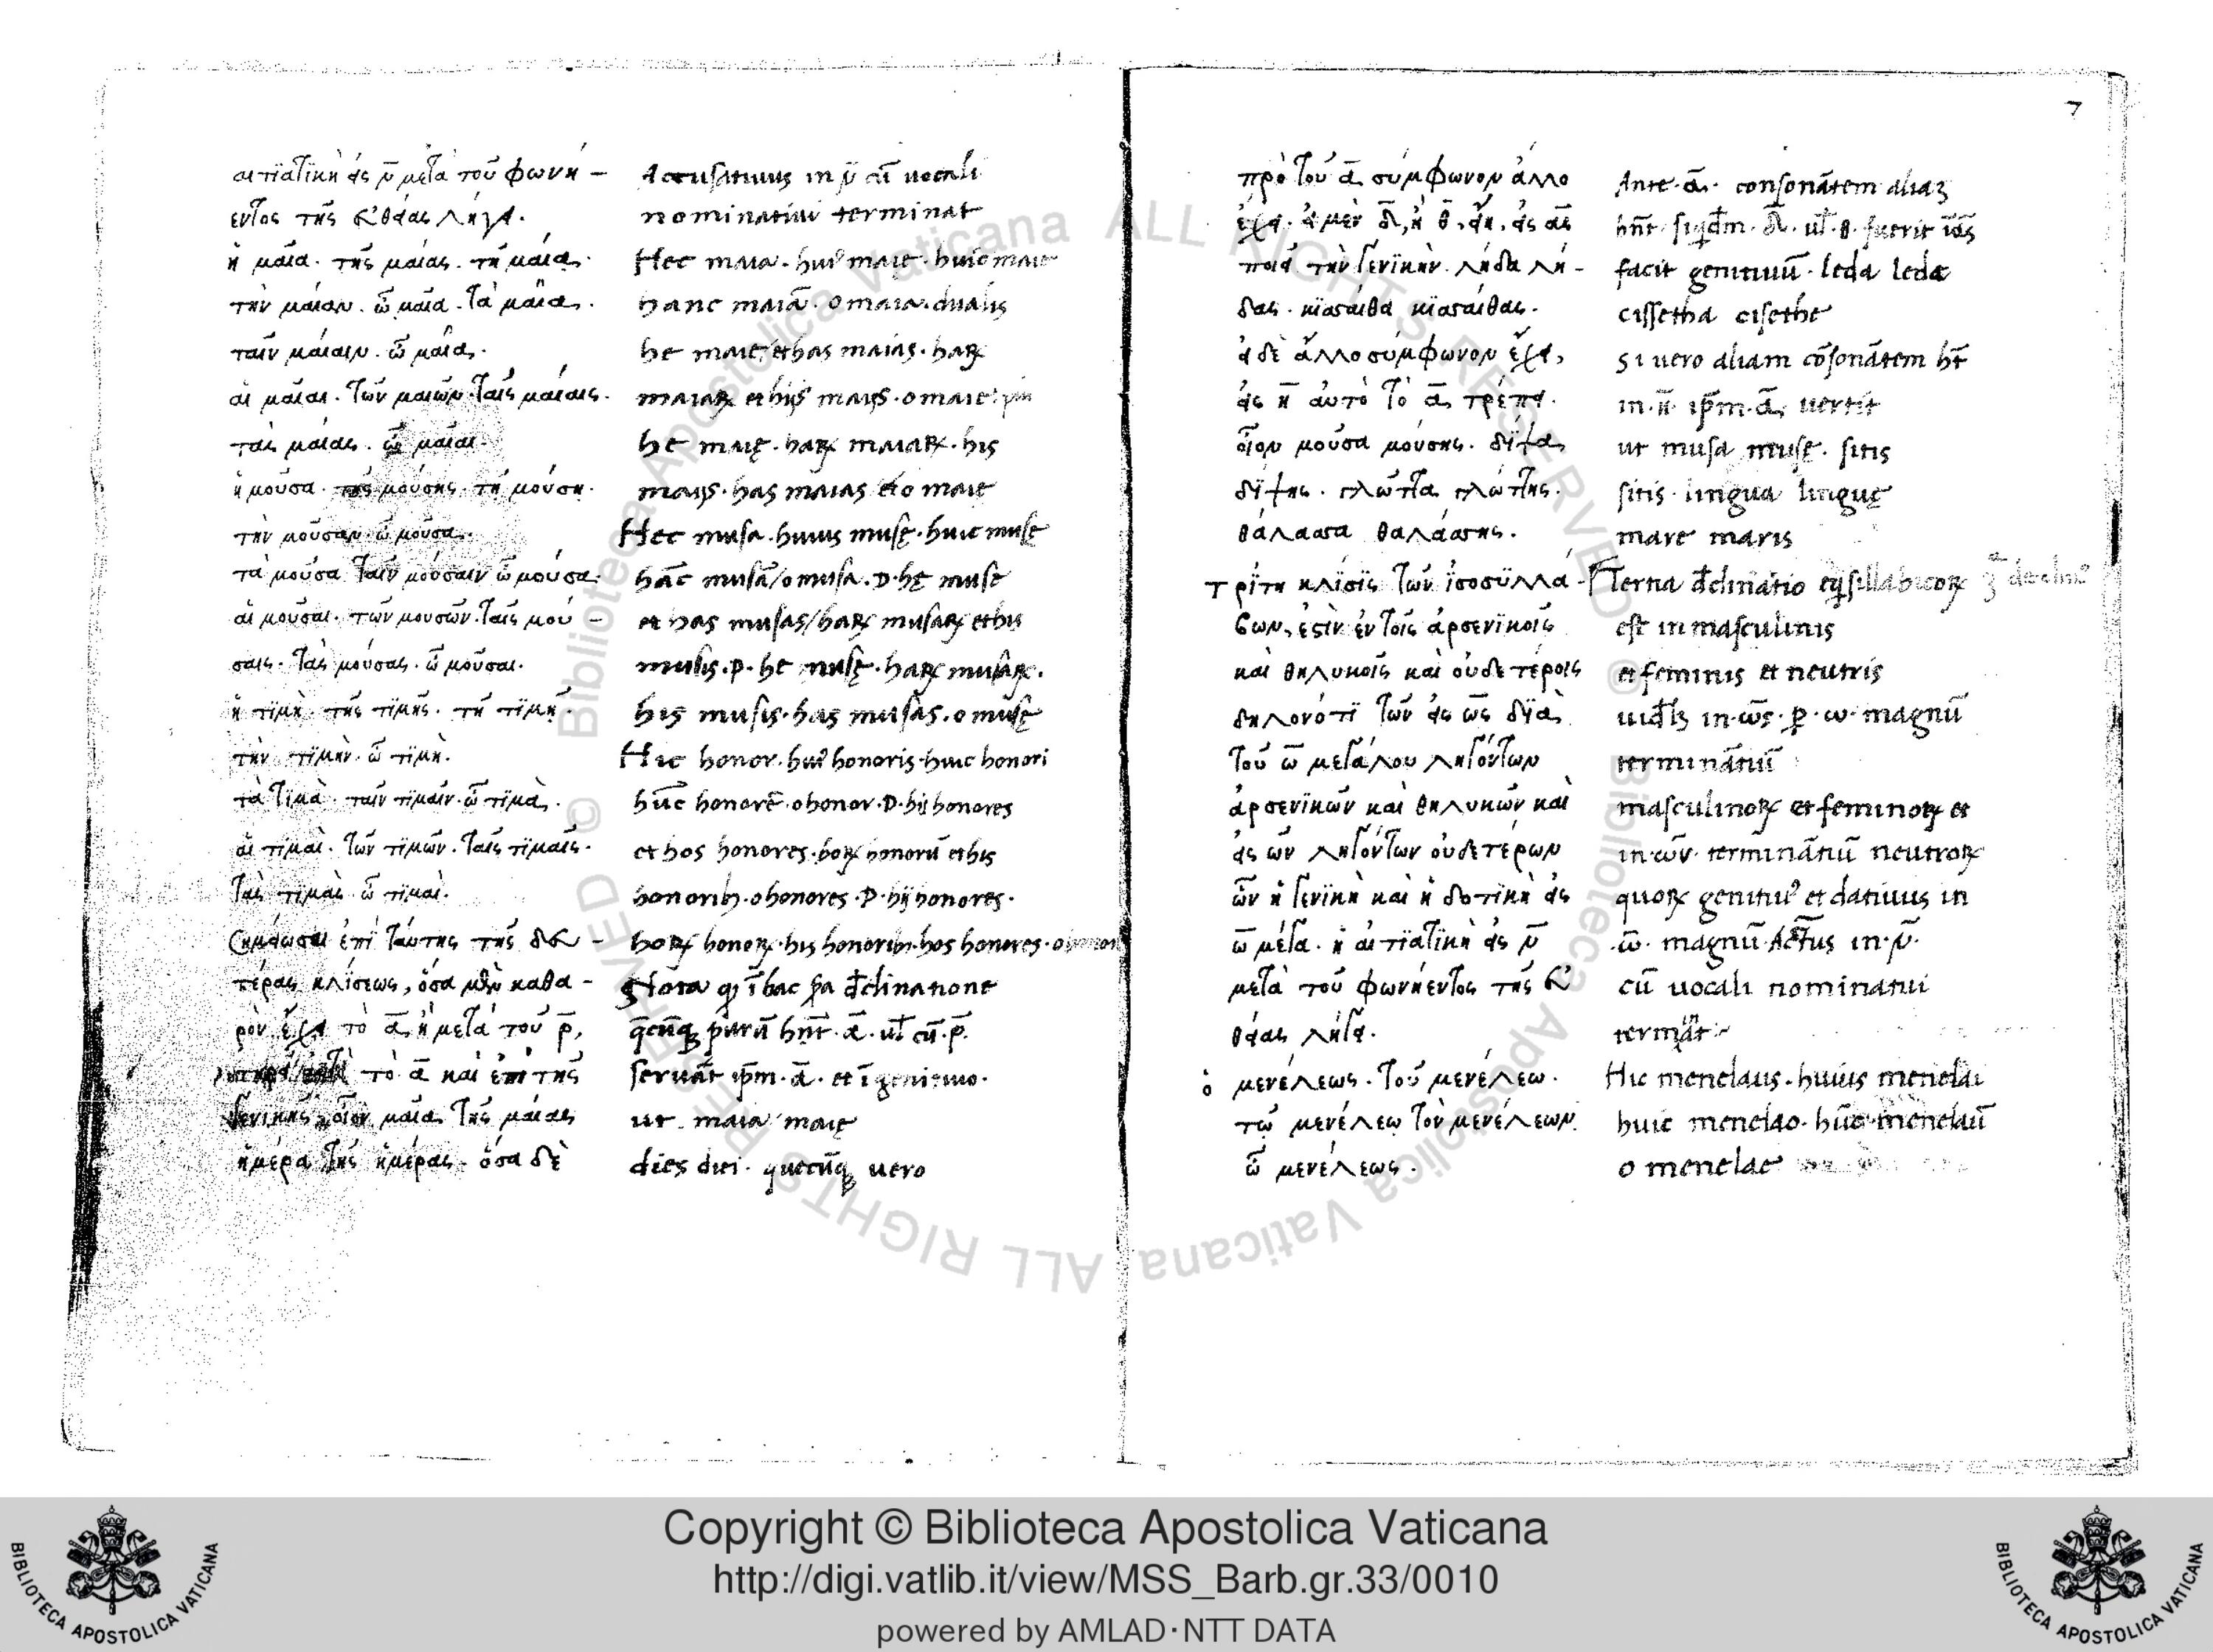 αιτϊατϊκὴ εἰς ν̄ μετὰ τοῦ φωνή -
εντος τῆς εὐθείας λήγει.
ἡ μαῖα. τῆς μαίας. τῇ μαίᾳ.
τὴν μαῖαν. ὦ μαῖα. τὰ μαία.
ταῖν μαίαιν. ὦ μαία.
αἱ μαῖαι. τῶν μαιῶν. ταῖς μαίαις.
τὰς μαίας. ὦ μαῖαι.
ἡ μοῦσα. τῆς μούσης. τῇ μούσῃ.
τὴν μοῦσαν. ὦ μοῦσα.
τὰ μούσα. ταῖν μούσαιν ὦ μούσα.
αἱ μοῦσαι. τῶν μουσῶν. ταῖς μού -
σαις. τὰς μούσας. ὦ μοῦσαι.
ἡ τϊμὴ. τῆς τϊμῆς. τῇ τϊμῇ.
τὴν τϊμὴν. ὦ τϊμὴ.
τὰ τϊμὰ. ταῖν τϊμαῖν. ὦ τϊμὰ.
αἱ τϊμαὶ. τῶν τϊμῶν. ταῖς τϊμαῖς.
τὰς τϊμὰς ὦ τϊμαὶ.
σημείωσαι ἐπὶ ταύτης τῆς δευ -
τέρας κλίσεως, ὅσα μὲν καθα -
ρὸν ἔχει τὸ ᾱ, ἢ μετὰ τοῦ ρ̄,
τὸ ᾱ καὶ ἐπὶ τῆς
γενικῆς, οἷον μαῖα τῆς μαίας
ἡμέρα τῆς ἡμέρας. ὅσα δὲ
Accusatiuus in ν̄ cū uocali
nominatiui terminat
Hec maia. huiꝰ maię. huic maie
hanc maiā. o maia. dualis
he maie / et has maias. haꝝ
maiaꝝ et hijs maijs. o maie
he maię. haꝝ maiaꝝ. his
maijs. has maias et o maie
Hec musa. huius musę. huic musę
hāc musā / o musa. D. hę muse
et has musas / haꝝ musaꝝ et his
musis. p. he musę. haꝝ musaꝝ.
his musis. has musas. o musę
Hic honor. huiꝰ honoris. huic honori
hūc honorē. o honor. D. hij honores
et hos honores. hoꝝ honorū et his
honorib. o honores. P. hij honores.
hoꝝ honoꝝ. his honorib. hos honores.
Nota ꝙ ī hac dclinatione
q̄cūqꝫ purū hn̄t. ᾱ. ul̄ cū. ρ̄.
seruāt ip̄m. ᾱ. et ī genitiuo.
ut maia maię
dies diei. quecūqꝫ uero
7
πρὸ τοῦ ᾱ σύμφωνον ἄλλο
ἔχει. εἰ μὲν δ̄, ἢ θ̄. εἴη. εἰς ᾱς
ποιεῖ τὴν γενϊκὴν. λήδα λή -
δας. κϊσσαίθα κϊσσαίθας.
εἰ δὲ ἄλλο σύμφωνον ἔχει,
εἰς η̄ αὐτὸ τὸ ᾱ τρέπει.
οἷον μοῦσα μούσης. δίψα
δίψης. γλῶττα γλώττης.
θάλασσα θαλάσσης.
τρίτη κλίσϊς τῶν ἰσοσϋλλά -
βων, ἐστὶν ἐν τοῖς ἀρσενϊκοῖς
καὶ θηλυκοῖς καὶ οὐδετέροις
δηλονότϊ τῶν εἰς ω̄ς δϊὰ
τοῦ ω̄ μεγάλου ληγόντων
ἀρσενϊκῶν καὶ θηλυκῶν καὶ
εἰς ων ληγόντων οὐδετέρων
ὧν ἡ γενϊκὴ καὶ ἡ δοτικὴ εἰς
ω̄ μέγα. ἡ αἰτϊατϊκὴ εἰς ν̄
μετὰ τοῦ φωνήεντος τῆς εὐ
θείας λήγει.
ὁ μενέλεως. τοῦ μενέλεω.
τῷ μενέλεῳ τὸν μενέλεων.
ὦ μενέλεως.
Ante. ᾱ. consonātem aliaꝫ
hn̄t. siqdm. δ̄. ul̄. θ. fuerit ī ᾱς
facit genitiuū. leda ledæ
cissetha cisethe
si uero aliam cōsonātem ht̄
in. η̄. ip̄m. ᾱ. uertit
ut musa musę. sitis
sitis. lingua linguę
mare maris
Tertia dclinatio eq̄sillabicoꝝ
est in masculinis
et feminis et neutris
uidꝫ in. ως. ꝑ. ω. magnū
terminātiū
masculinoꝝ et feminoꝝ et
in. ων. terminātiū neutroꝝ
quoꝝ genitiuꝰ et datiuus in
.ω̄. magnū. Actus in. ν̄.
cū uocali nominatiui
termiāt
Hic menelaus. huius menelai
huic menelao. hūc menelaū
o menelae
Copyright © Biblioteca Apostolica Vaticana
http://digi.vatlib.it/view/MSS_Barb.gr.33/0010
powered by AMLAD·NTT DATA
BIBLIOTECA APOSTOLICA VATICANA
BIBLIOTECA APOSTOLICA VATICANA
© Biblioteca Apostolica Vaticana ALL RIGHTS RESERVED © Biblioteca Apostolica Vaticana ALL RIGHTS RESERVED